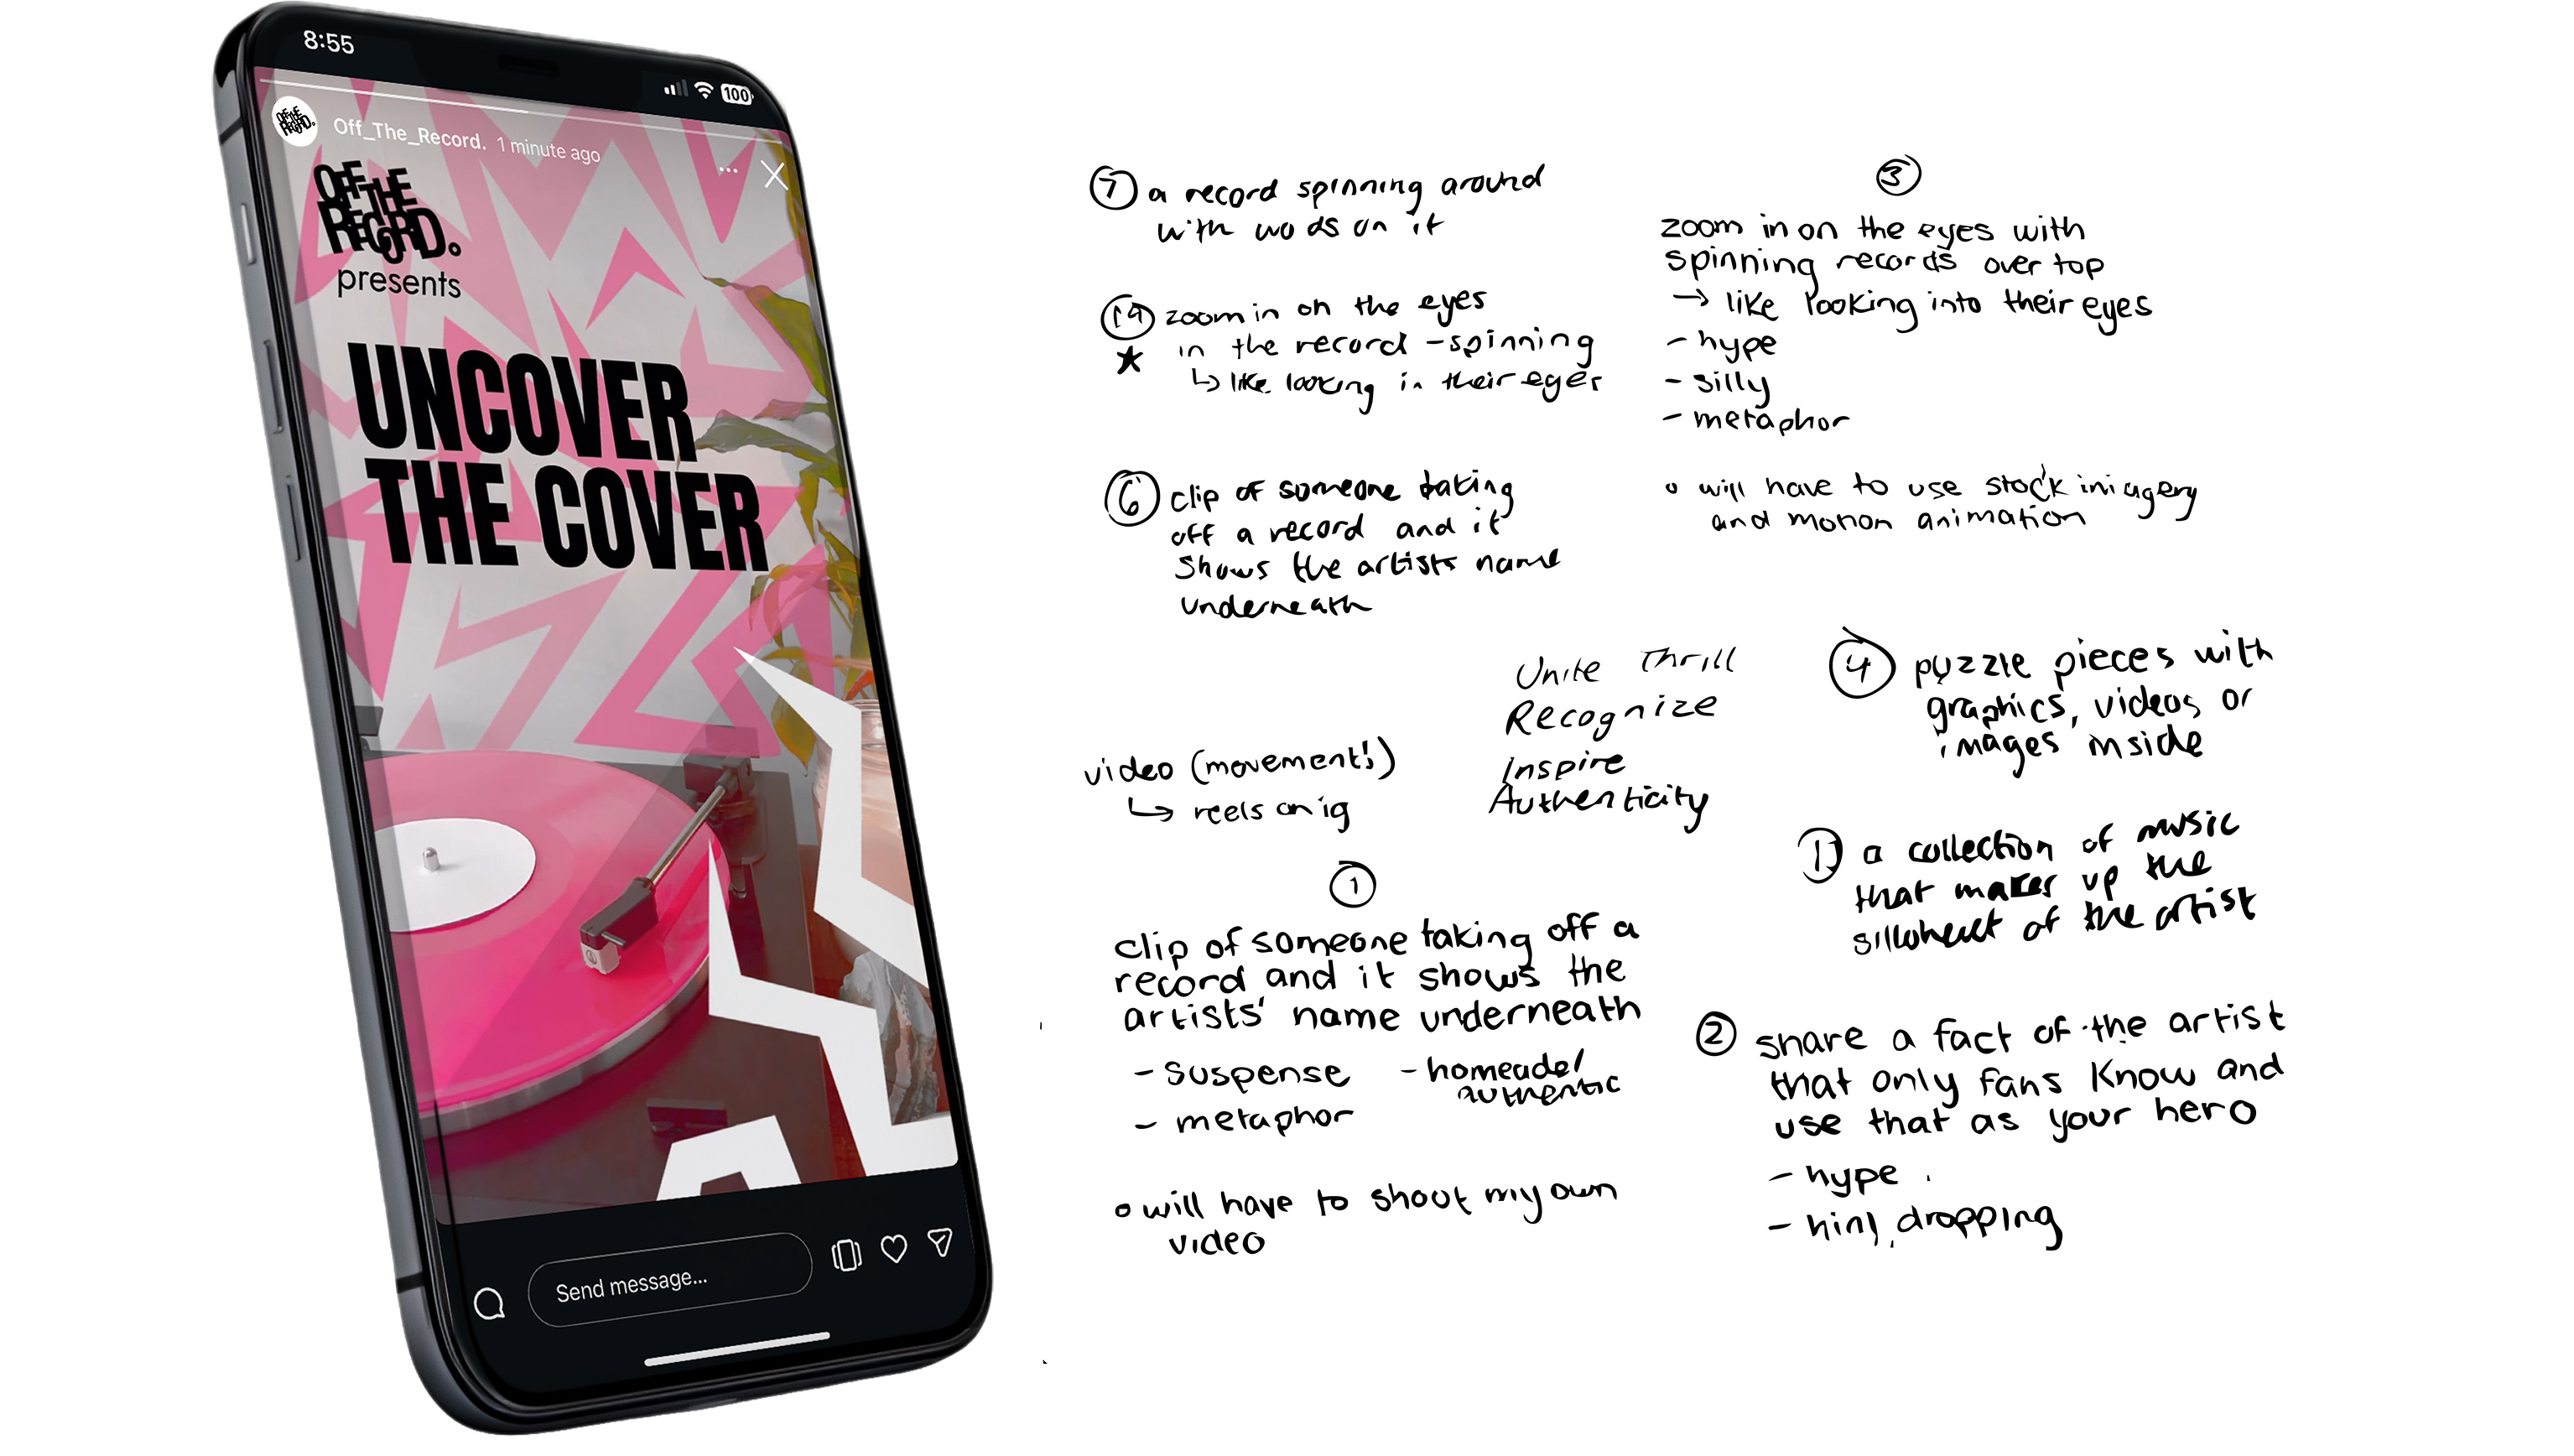 8:55
100
Off_The_Record. 1 minute ago
OFF
THE
RECORD.
presents
UNCOVER
THE COVER
Send message...
7 a record spinning around
with wods on it
19 zoom in on the eyes
in the record - spinning
↳ like looking in their eyes
6 clip of someone taking
off a record and it
shows the artists name
underneath
3
zoom in on the eyes with
spinning records over top
→ like looking into their eyes
- hype
- silly
- metaphor
o will have to use stock imagery
and motion animation
video (movement!)
↳ reels on ig
Unite Thrill
Recognize
Inspire
Authenticity
4 puzzle pieces with
graphics, videos or
images inside
1 a collection of music
that makes up the
of the artist
1
clip of someone taking off a
record and it shows the
artists' name underneath
- suspense
- metaphor
- homeade/
authentic
o will have to shoot my own
video
2 share a fact of the artist
that only fans know and
use that as your hero
- hype
- hint dropping